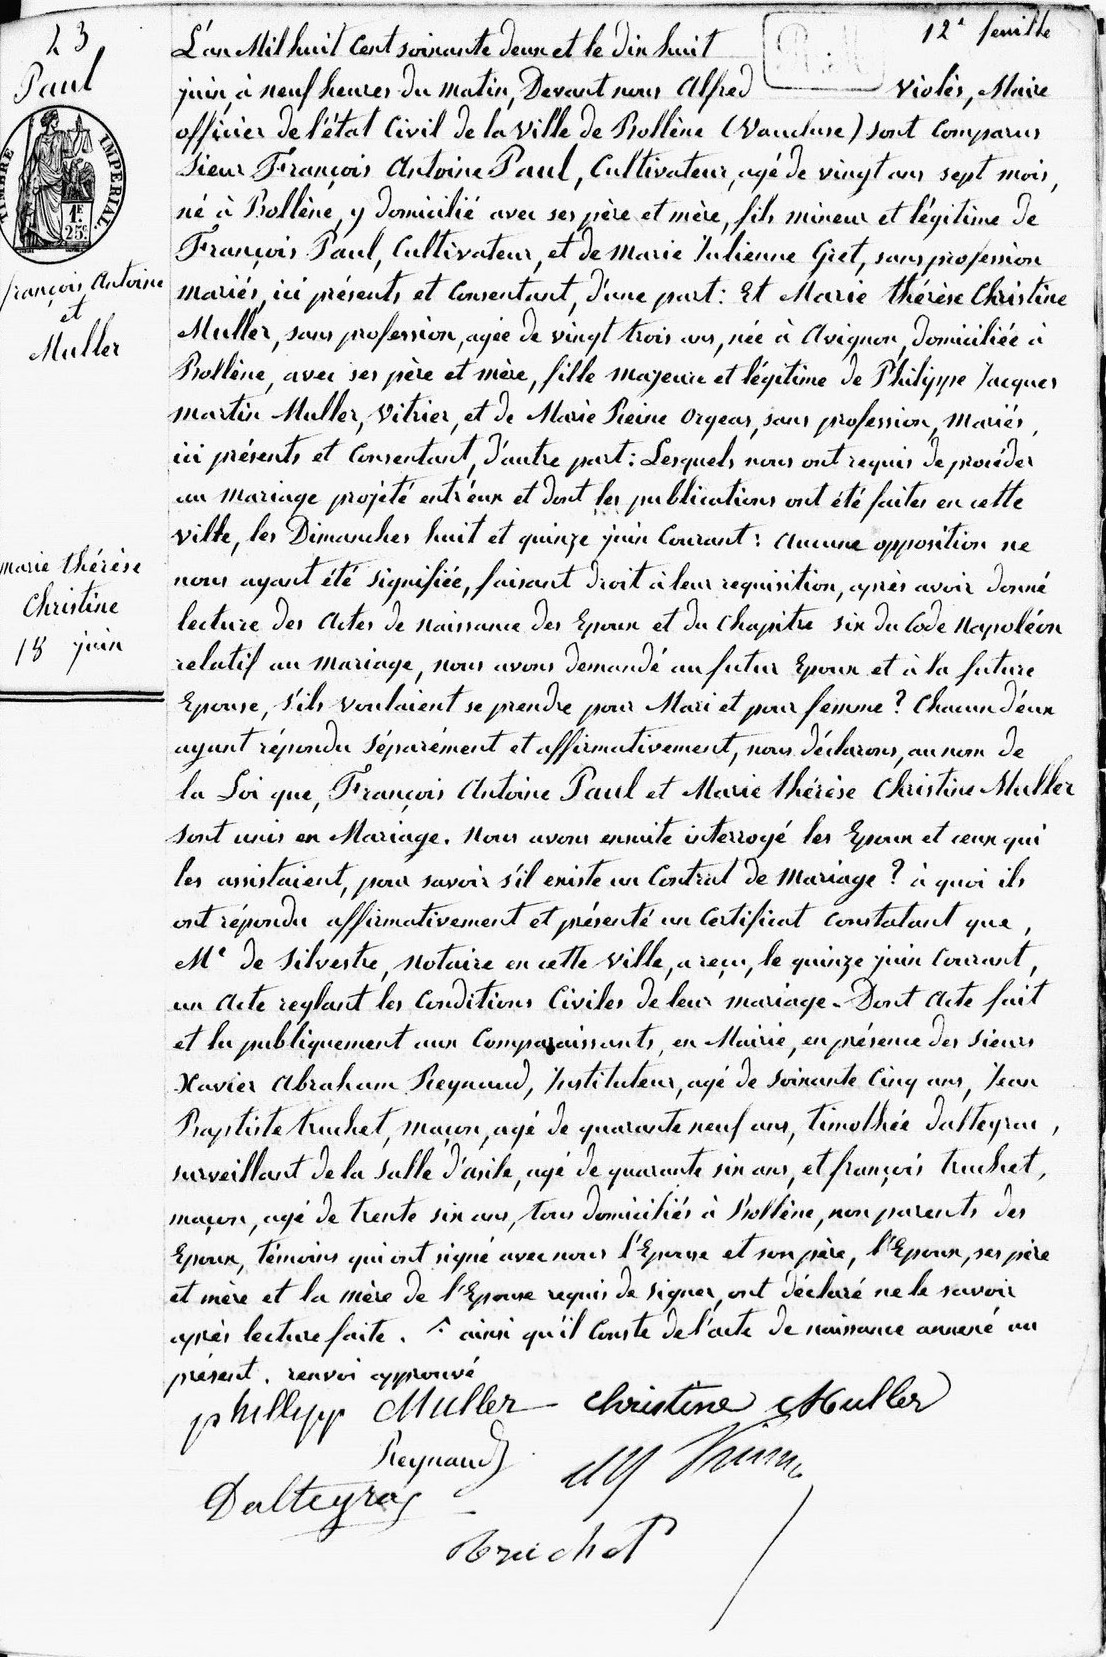 23
Paul
TIMBRE IMPERIAL.
1F.
25c.
françois Antoine
et
Muller
marie thérèse
Christine
18 juin
12e feuille
L'an Mil huit Cent soixante deux et le dix huit
juin, à neuf heures du matin, Devant nous Alfred Violès, Maire
officier de l'état Civil de la ville de Bollène (Vaucluse) sont Comparus
Sieur François Antoine Paul, Cultivateur, agé de vingt ans sept mois,
né à Bollène, y domicilié avec ses père et mère, fils mineur et légitime de
François Paul, Cultivateur, et de Marie Julienne Gret, sans profession
mariés, ici présents et Consentant, d'une part: Et Marie thérèse Christine
Muller, sans profession, agée de vingt trois ans, née à Avignon, domiciliée à
Bollène, avec ses père et mère, fille majeure et légitime de Philippe Jacques
martin Muller, Vitrier, et de Marie Reine Orgeas, sans profession, mariés,
ici présents et Consentant, d'autre part: Lesquels nous ont requis de procéder
au mariage projeté entr'eux et dont les publications ont été faites en cette
ville, les Dimanches huit et quinze juin Courant: Aucune opposition ne
nous ayant été signifiée, faisant droit à leur requisition, après avoir donné
lecture des Actes de naissance des Epoux et du Chapitre six du Code Napoléon
relatif au mariage, nous avons demandé au futur Epoux et à la future
Epouse, s'ils voulaient se prendre pour Mari et pour femme? Chacun d'eux
ayant répondu séparément et affirmativement, nous déclarons, au nom de
la Loi que, François Antoine Paul et Marie thérèse Christine Muller
sont unis en Mariage. Nous avons ensuite interrogé les Epoux et ceux qui
les assistaient, pour savoir s'il existe un Contrat de mariage? à quoi ils
ont répondu affirmativement et présenté un Certificat constatant que,
Me de Silvestre, Notaire en cette Ville, a reçu, le quinze juin Courant,
un Acte reglant les Conditions Civiles de leur mariage. Dont Acte fait
et lu publiquement aux Comparaissants, en Mairie, en présence des Sieurs
Xavier Abraham Reynaud, Instituteur, agé de soixante Cinq ans, Jean
Baptiste truchet, maçon, agé de quarante neuf ans, timothée Dalteyrac,
surveillant de la Salle d'asile, agé de quarante six ans, et françois truchet,
maçon, agé de trente six ans, tous domiciliés à Bollène, non parents des
Epoux, témoins qui ont signé avec nous l'Epouse et son père, l'Epoux, ses père
et mère et la mère de l'Epouse requis de signer, ont déclaré ne le savoir
après lecture faite. ^ ainsi qu'il Conste de l'acte de naissance annexé au
présent. renvoi approuvé
phillipp Muller Christine Muller
Reynaud
Dalteyrac
truchet